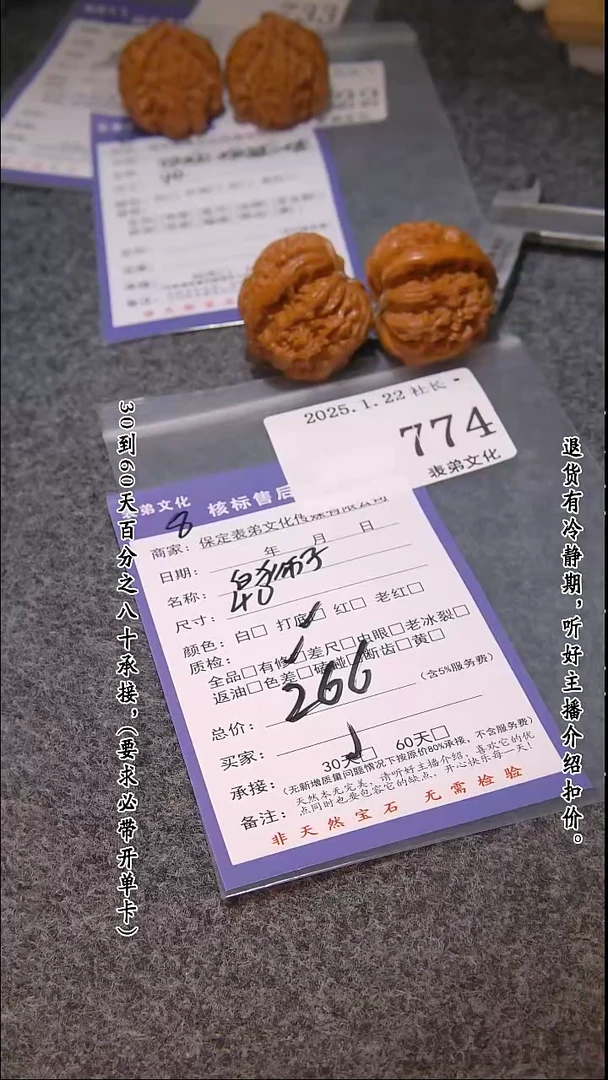 2025.1.22 社长
774
表弟文化
表弟文化 核标售后
8
商家：保定表弟文化传媒有限公司
日期： 年 月 日
名称：白狮子
尺寸：40
颜色：白□ 打底□ 红□ 老红□
质检：全品□有修□差尺□虫眼□老冰裂□
返油□色差□磕碰□断齿□黄□
总价：266 （含5%服务费）
买家：
承接：30天□ 60天□
（无新增质量问题情况下按原价80%承接，不含服务费）
备注：天然本无完美，请听好主播介绍，喜欢它的优
点同时也要包容它的缺点，开心快乐每一天！
非天然宝石 无需检验
30到60天百分之八十承接，（要求必带开单卡）
退货有冷静期，听好主播介绍扣价。